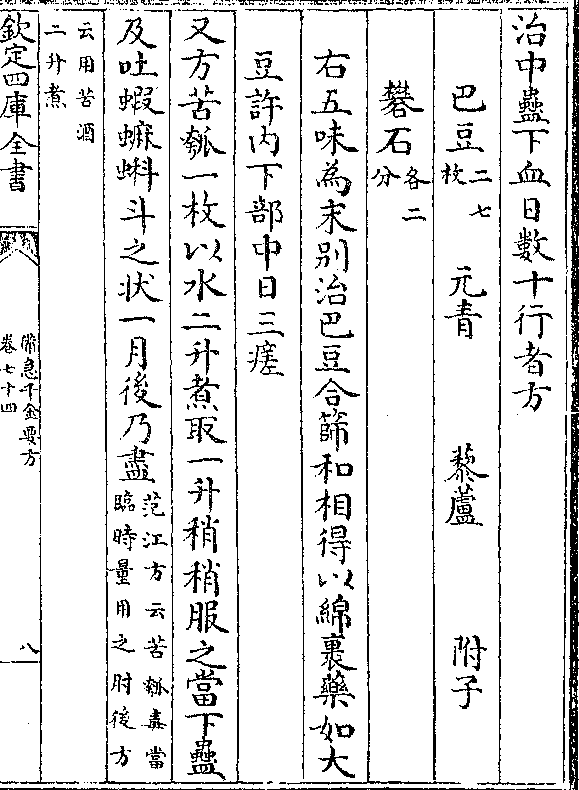 治中蠱下血日數十行者方
巴豆二七枚 元青 藜蘆 附子
礬石各二分
右五味為末别治巴豆合篩和相得以綿裹藥如大
豆許内下部中日三瘥
又方苦瓠一枚以水二升煮取一升稍稍服之當下蠱
及吐蝦蟆蝌斗之状一月後乃盡范江方云苦瓠毒當臨時量用之肘後方
云用苦酒二升煮
欽定四庫全書
備急千金要方
卷七十四
八